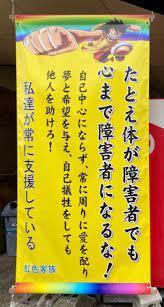 たとえ体が障害者でも
心まで障害者になるな!
自己中心にならず、常に周りに愛を配り
夢と希望を与え、自己犠牲をしても
他人を助けろ!
私達が常に支援している。
虹色家族